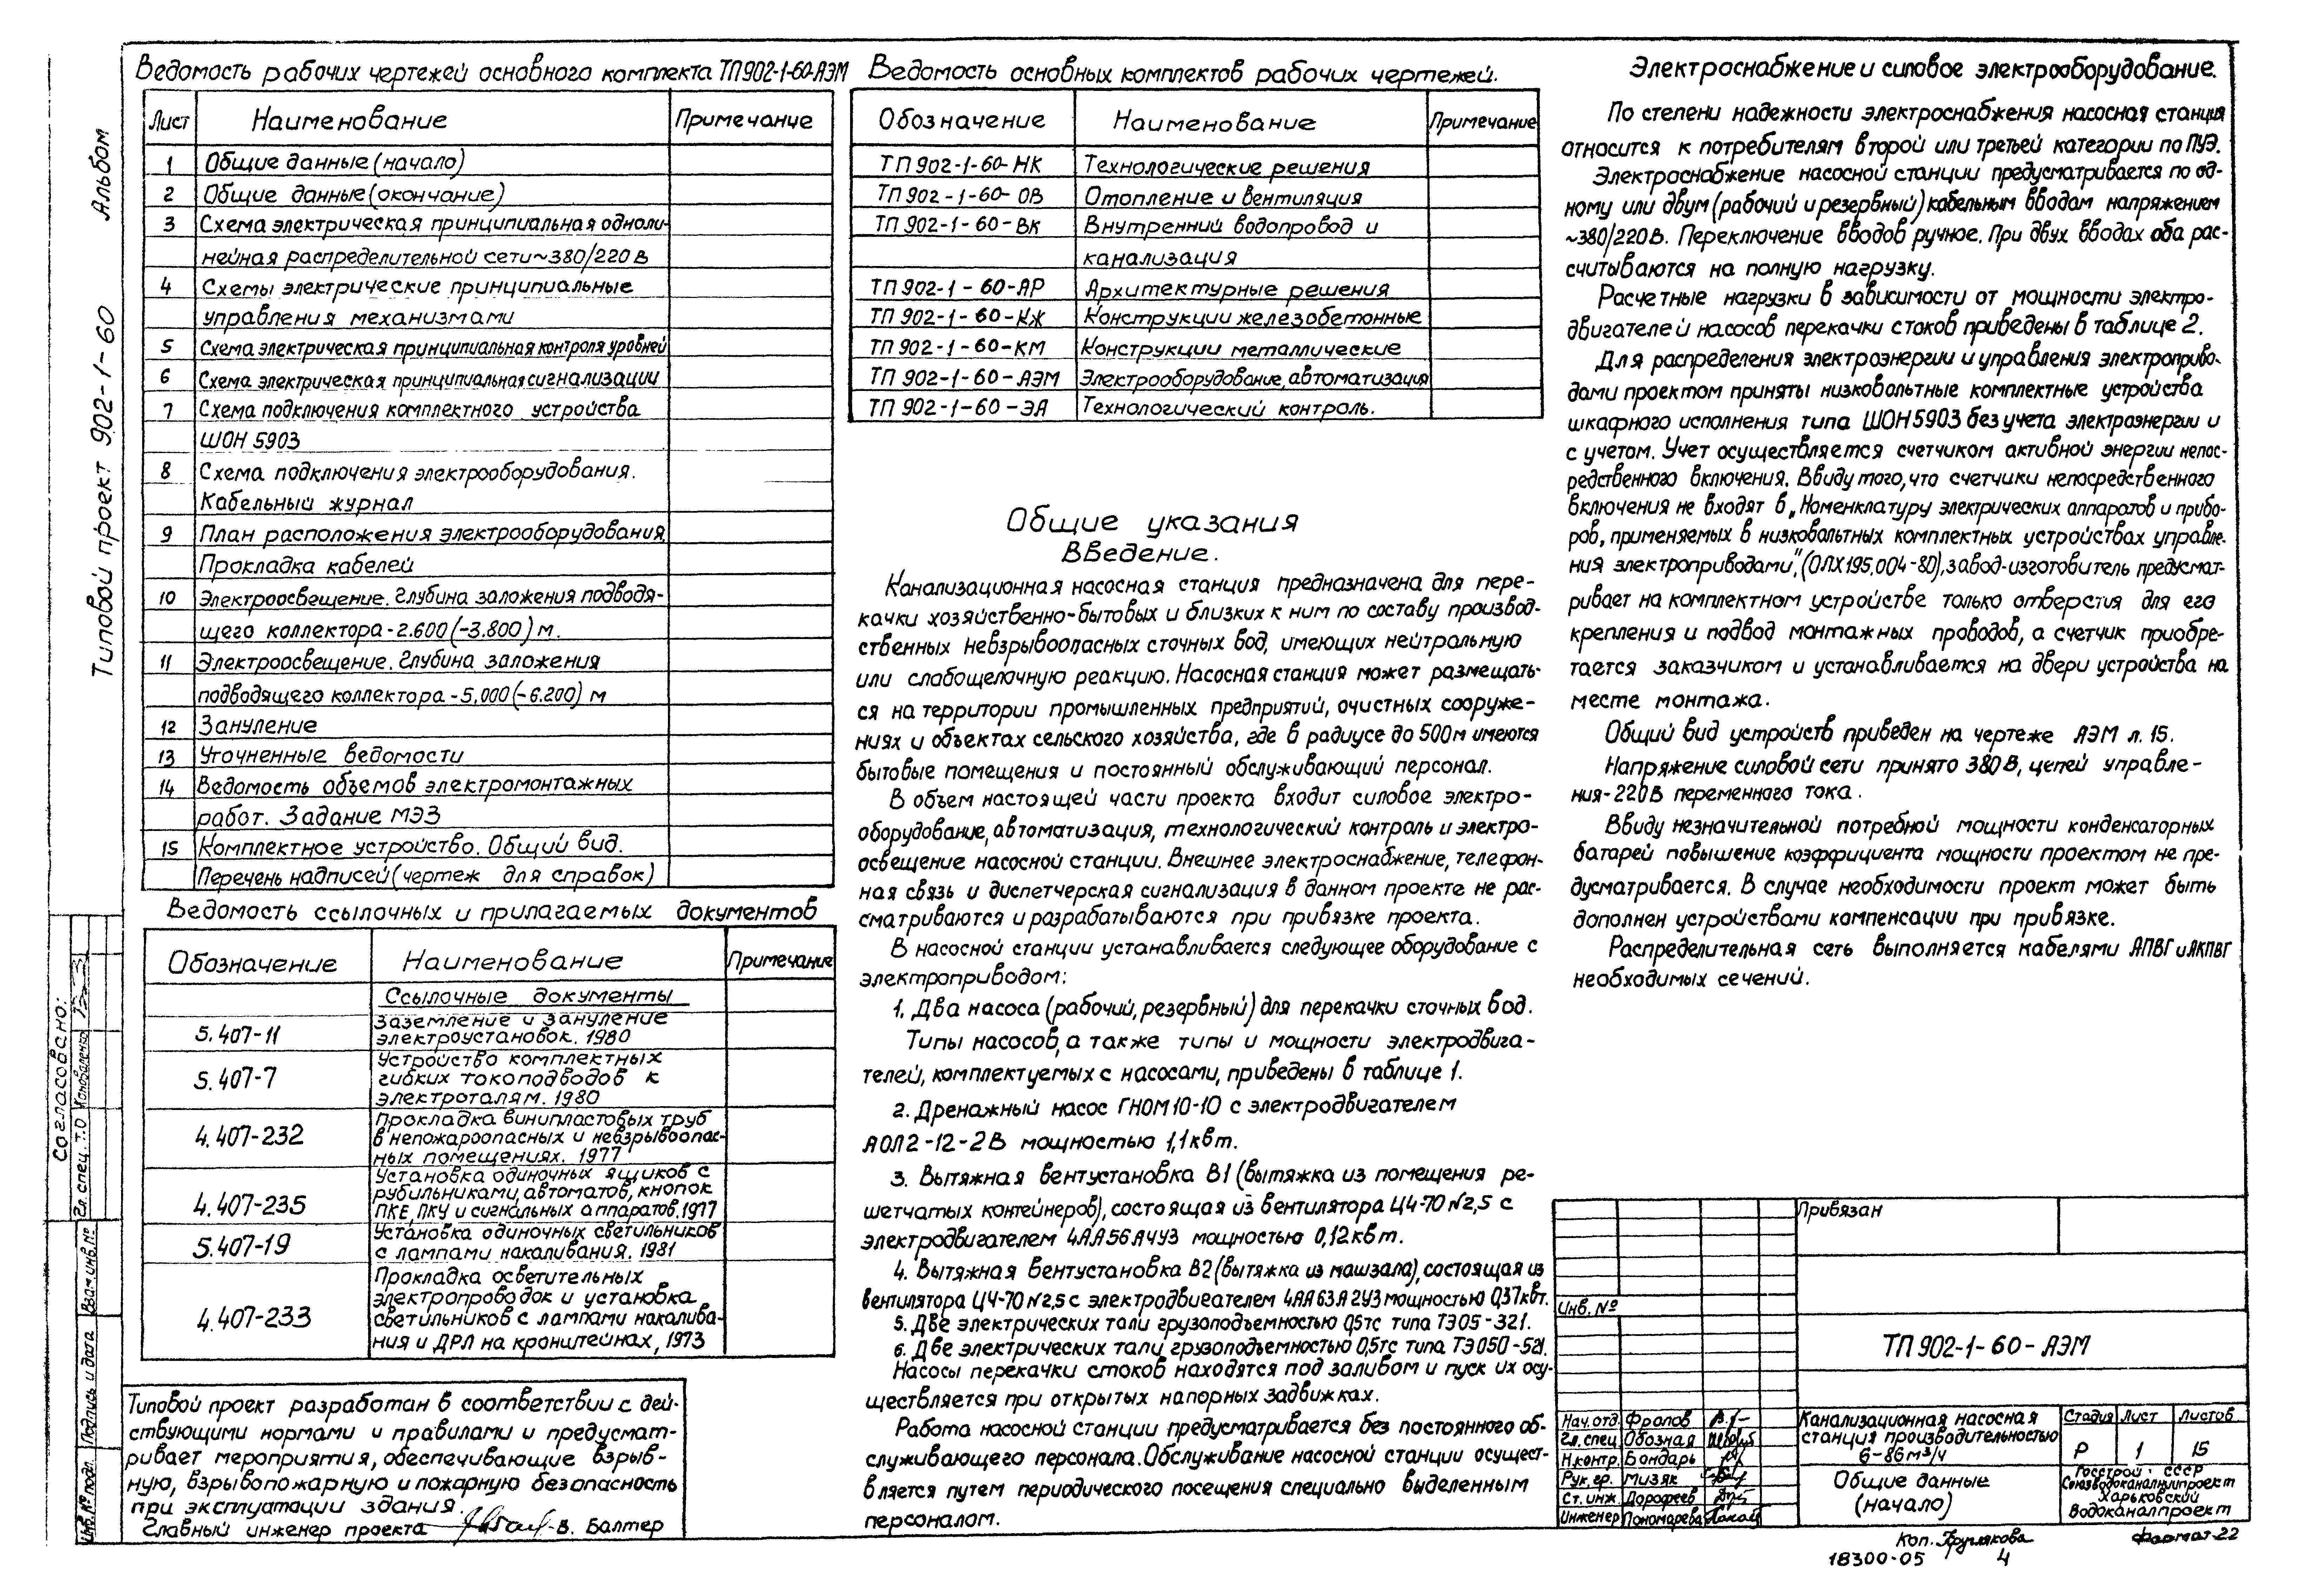 Альбом
Типовой проект 902-1-60
Ведомость рабочих чертежей основного комплекта ТП902-1-60-АЭМ
Лист Наименование Примечание
1 Общие данные (начало)
2 Общие данные (окончание)
3 Схема электрическая принципиальная одноли-
нейная распределительной сети ~380/220 В
4 Схемы электрические принципиальные
управления механизмами
5 Схема электрическая принципиальная контроля уровней
6 Схема электрическая принципиальная сигнализации
7 Схема подключения комплектного устройства
ШОН 5903
8 Схема подключения электрооборудования.
Кабельный журнал
9 План расположения электрооборудования.
Прокладка кабелей
10 Электроосвещение. Глубина заложения подводя-
щего коллектора -2.600 (-3.800) м.
11 Электроосвещение. Глубина заложения
подводящего коллектора -5,000 (-6.200) м
12 Зануление
13 Уточненные ведомости
14 Ведомость объемов электромонтажных
работ. Задание МЭЗ
15 Комплектное устройство. Общий вид.
Перечень надписей (чертеж для справок)
Ведомость ссылочных и прилагаемых документов
Обозначение Наименование Примечание
Ссылочные документы
5.407-11 Заземление и зануление
электроустановок. 1980
5.407-7 Устройство комплектных
гибких токоподводов к
электроталям. 1980
4.407-232 Прокладка винипластовых труб
в непожароопасных и невзрывоопас-
ных помещениях. 1977
4.407-235 Установка одиночных ящиков с
рубильниками, автоматов, кнопок
ПКЕ, ПКУ и сигнальных аппаратов. 1977
5.407-19 Установка одиночных светильников
с лампами накаливания. 1981
4.407-233 Прокладка осветительных
электропроводок и установка
светильников с лампами накалива-
ния и ДРЛ на кронштейнах, 1973
Типовой проект разработан в соответствии с дей-
ствующими нормами и правилами и предусмат-
ривает мероприятия, обеспечивающие взрыв-
ную, взрывопожарную и пожарную безопасность
при эксплуатации здания.
Главный инженер проекта В. Балтер
Согласовано:
Гл. спец. Т.О Коноваленко
Взам. инв. №
Подпись и дата
Инв. № подл.
Ведомость основных комплектов рабочих чертежей.
Обозначение Наименование Примечание
ТП 902-1-60-НК Технологические решения
ТП 902-1-60-ОВ Отопление и вентиляция
ТП 902-1-60-ВК Внутренний водопровод и
канализация
ТП 902-1-60-АР Архитектурные решения
ТП 902-1-60-КЖ Конструкции железобетонные
ТП 902-1-60-КМ Конструкции металлические
ТП 902-1-60-АЭМ Электрооборудование, автоматизация
ТП 902-1-60-ЭА Технологический контроль.
Общие указания
Введение.
Канализационная насосная станция предназначена для пере-
качки хозяйственно-бытовых и близких к ним по составу производ-
ственных невзрывоопасных сточных вод, имеющих нейтральную
или слабощелочную реакцию. Насосная станция может размещать-
ся на территории промышленных предприятий, очистных сооруже-
ниях и объектах сельского хозяйства, где в радиусе до 500м имеются
бытовые помещения и постоянный обслуживающий персонал.
В объем настоящей части проекта входит силовое электро-
оборудование, автоматизация, технологический контроль и электро-
освещение насосной станции. Внешнее электроснабжение, телефон-
ная связь и диспетчерская сигнализация в данном проекте не рас-
сматриваются и разрабатываются при привязке проекта.
В насосной станции устанавливается следующее оборудование с
электроприводом:
1. Два насоса (рабочий, резервный) для перекачки сточных вод.
Типы насосов, а также типы и мощности электродвига-
телей, комплектуемых с насосами, приведены в таблице 1.
2. Дренажный насос ГНОМ 10-10 с электродвигателем
АОЛ2-12-2В мощностью 1,1квт.
3. Вытяжная вентустановка В1 (вытяжка из помещения ре-
шетчатых контейнеров), состоящая из вентилятора Ц4-70 №2,5 с
электродвигателем 4АА56А4У3 мощностью 0,12квт.
4. Вытяжная вентустановка В2 (вытяжка из машзала), состоящая из
вентилятора Ц4-70 №2,5 с электродвигателем 4АА63А2У3 мощностью 0,37квт.
5. Две электрических тали грузоподъемностью 0,5тс типа ТЭ05-321.
6. Две электрических тали грузоподъемностью 0,5тс типа ТЭ050-521.
Насосы перекачки стоков находятся под заливом и пуск их осу-
ществляется при открытых напорных задвижках.
Работа насосной станции предусматривается без постоянного об-
служивающего персонала. Обслуживание насосной станции осущест-
вляется путем периодического посещения специально выделенным
персоналом.
Электроснабжение и силовое электрооборудование.
По степени надежности электроснабжения насосная станция
относится к потребителям второй или третьей категории по ПУЭ.
Электроснабжение насосной станции предусматривается по од-
ному или двум (рабочий и резервный) кабельным вводам напряжением
~380/220В. Переключение вводов ручное. При двух вводах оба рас-
считываются на полную нагрузку.
Расчетные нагрузки в зависимости от мощности электро-
двигателей насосов перекачки стоков приведены в таблице 2.
Для распределения электроэнергии и управления электроприво-
дами проектом приняты низковольтные комплектные устройства
шкафного исполнения типа ШОН 5903 без учета электроэнергии и
с учетом. Учет осуществляется счетчиком активной энергии непос-
редственного включения. Ввиду того, что счетчики непосредственного
включения не входят в „Номенклатуру электрических аппаратов и прибо-
ров, применяемых в низковольтных комплектных устройствах управле-
ния электроприводами," (ОЛХ195.004-80), завод-изготовитель предусмат-
ривает на комплектном устройстве только отверстия для его
крепления и подвод монтажных проводов, а счетчик приобре-
тается заказчиком и устанавливается на двери устройства на
месте монтажа.
Общий вид устройств приведен на чертеже АЭМ л. 15.
Напряжение силовой сети принято 380В, цепей управле-
ния-220В переменного тока.
Ввиду незначительной потребной мощности конденсаторных
батарей повышение коэффициента мощности проектом не пре-
дусматривается. В случае необходимости проект может быть
дополнен устройствами компенсации при привязке.
Распределительная сеть выполняется кабелями АПВГ и АКПВГ
необходимых сечений.
Привязан
Инв. №
ТП 902-1-60-АЭМ
Нач. отд. Фролов
Гл. спец. Обозная
Н.контр. Бондарь
Рук. гр. Мизяк
Ст. инж. Дорофеев
Инженер Пономарева
Канализационная насосная
станция производительностью
6-86м³/ч
Стадия Лист Листов
Р 1 15
Общие данные
(начало)
Госстрой СССР
Союзводоканалпроект
Харьковский
Водоканалпроект
Коп. Формат 22
18300-05 4